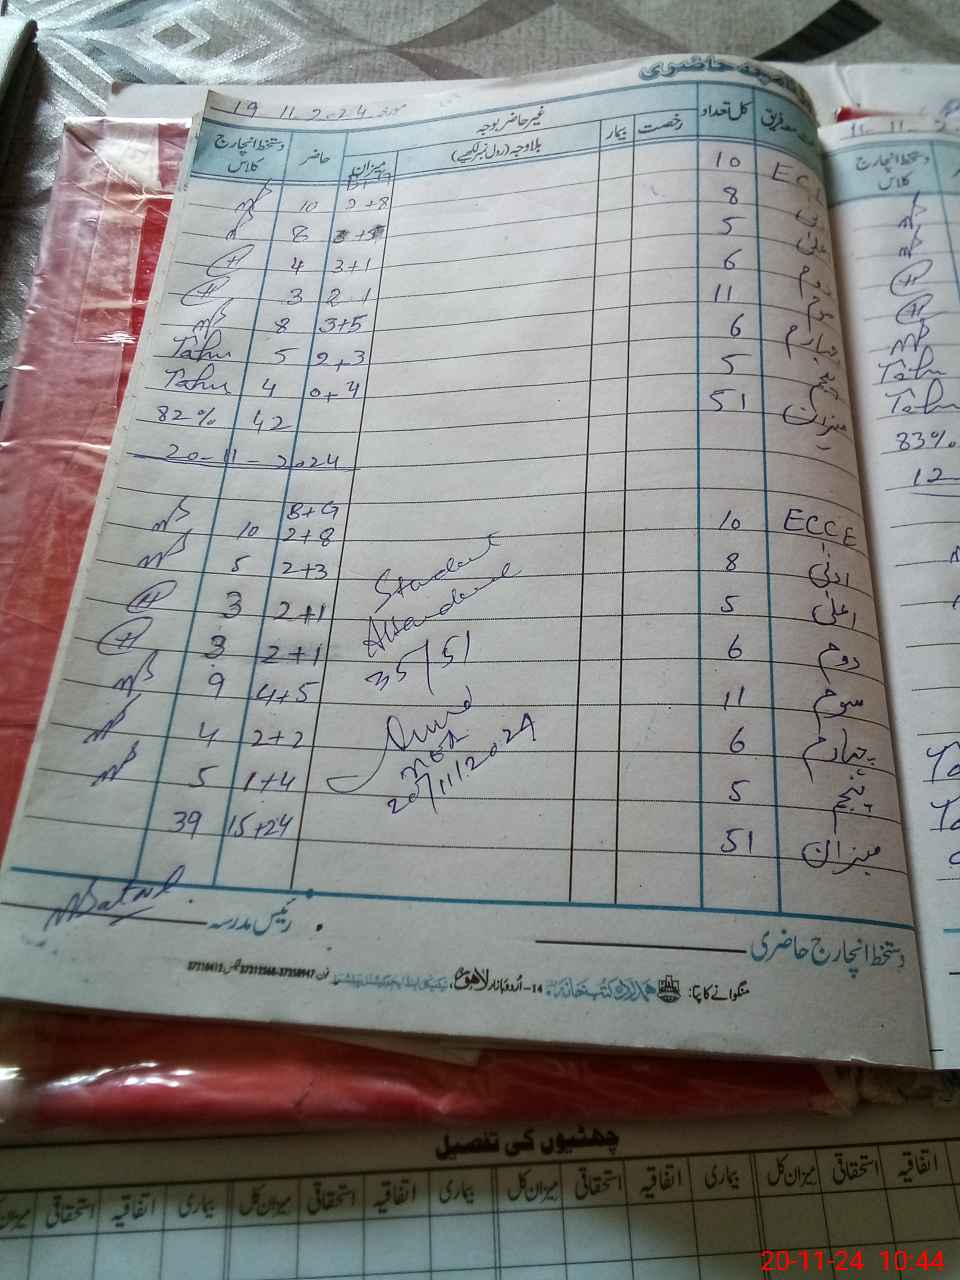 حاضری
مورخہ 19 11 2024
کل تعداد رخصت بیمار غیر حاضر بوجہ حاضر دستخط انچارج کلاس
بلاوجہ (رول نمبر لکھیے) میزان
B+G
10 2+8 10
اعلیٰ 8 8
دوم 5 3+1 4
سوم 6 2 1 3
چہارم 11 3+5 8
6 2+3 5 Tahir
5 0+4 4 Tahir
میزان 51 42 82%
20-11-2024
B+G
ECCE 10 2+8 10
ادنیٰ 8 2+3 5
اعلیٰ 5 2+1 3
دوم 6 2+1 3
سوم 11 4+5 9
چہارم 6 2+2 4
پنجم 5 1+4 5
میزان 51 15+24 39
Student
Attendance
35/51
20/11/2024
دستخط انچارج حاضری رئیس مدرسہ
منگوانے کا پتا: ہمدرد کتب خانہ 14-اُردو بازار لاہور
دستخط انچارج
کلاس
Tahir
83%
12
چھٹیوں کی تفصیل
اتفاقیہ استحقاقی میزان کل بیماری اتفاقیہ استحقاقی میزان کل بیماری اتفاقیہ استحقاقی میزان کل بیماری اتفاقیہ استحقاقی میزان کل
20-11-24 10:44